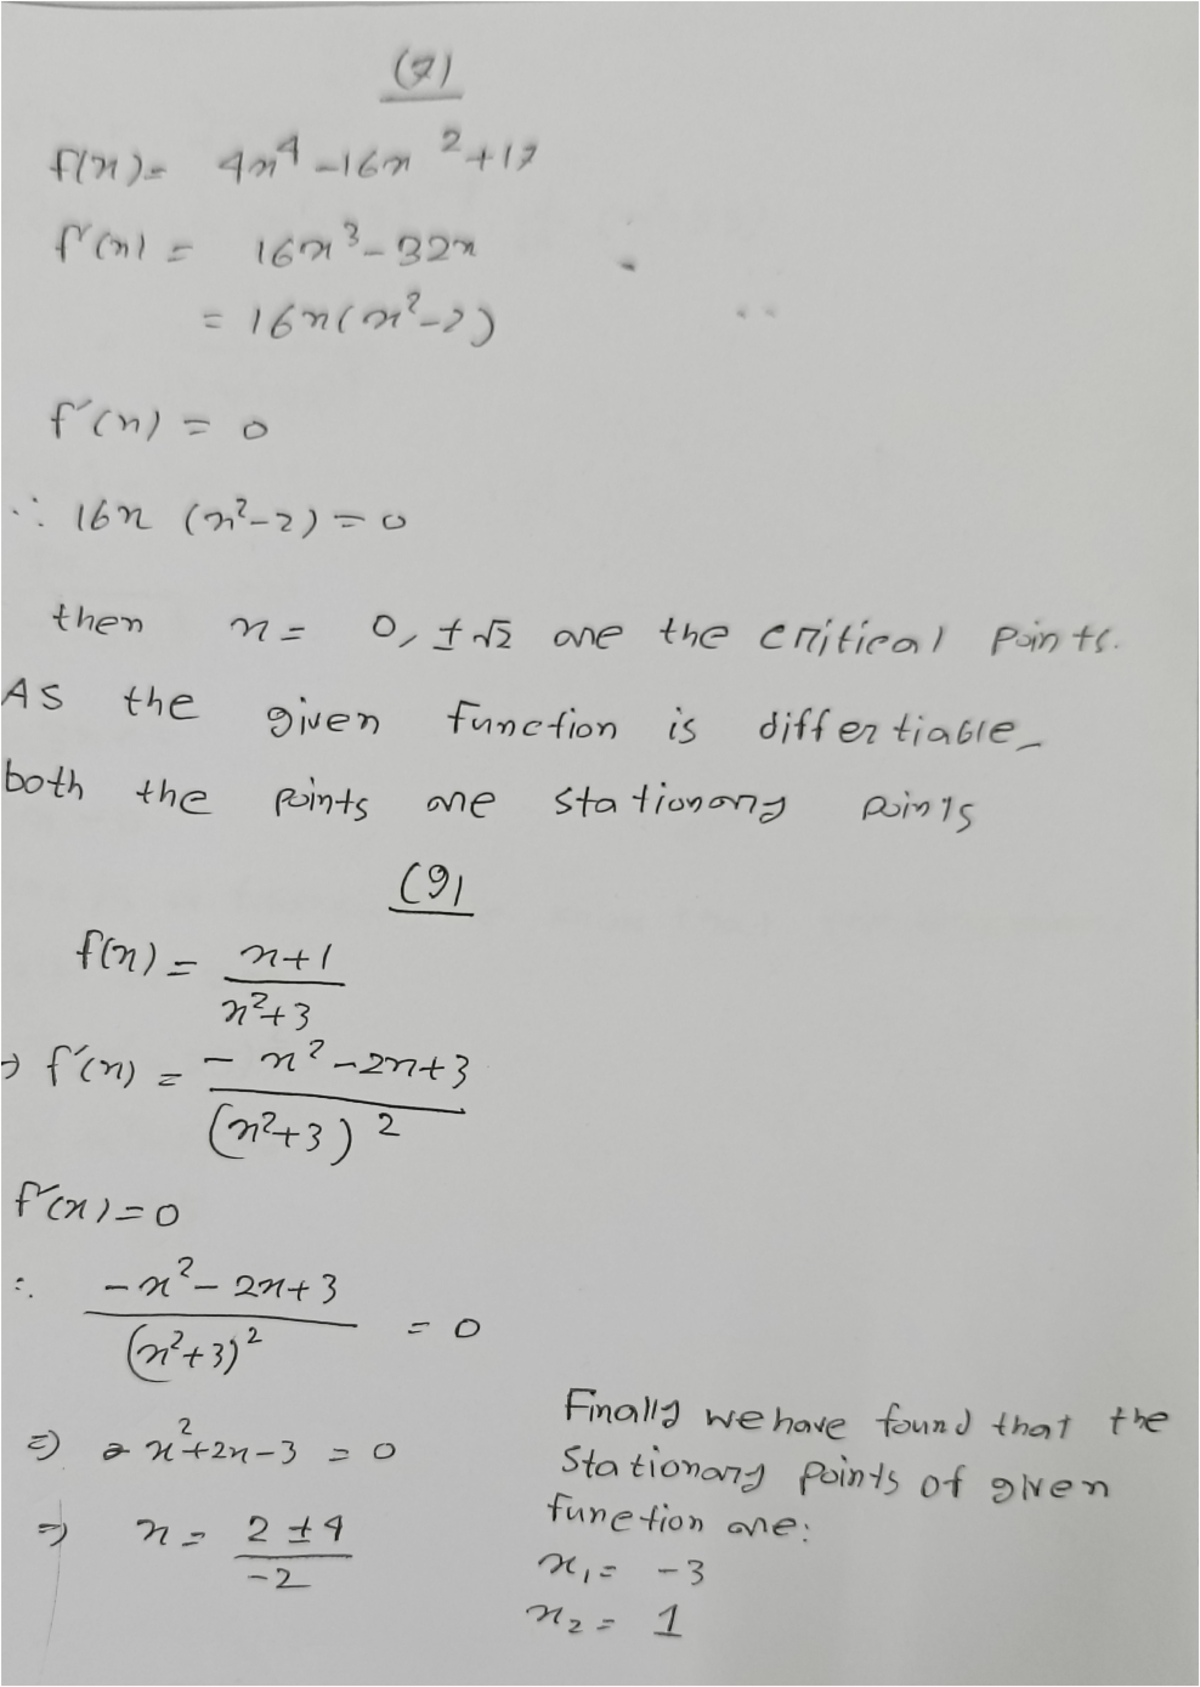 (7)
f(x) = 4x⁴ - 16x² + 17
f'(x) = 16x³ - 32x
= 16x(x² - 2)
f'(x) = 0
∴ 16x (x² - 2) = 0
then x = 0, ±√2 are the critical points.
As the given function is differtiable
both the points are stationary points
(9)
f(x) = x+1 / x²+3
→ f'(x) = - x² - 2x + 3 / (x²+3)²
f'(x) = 0
∴ -x² - 2x + 3 / (x²+3)² = 0
⇒ x² + 2x - 3 = 0
⇒ x = 2 ± 4 / -2
Finally we have found that the
stationary points of given
function are:
x₁ = -3
x₂ = 1